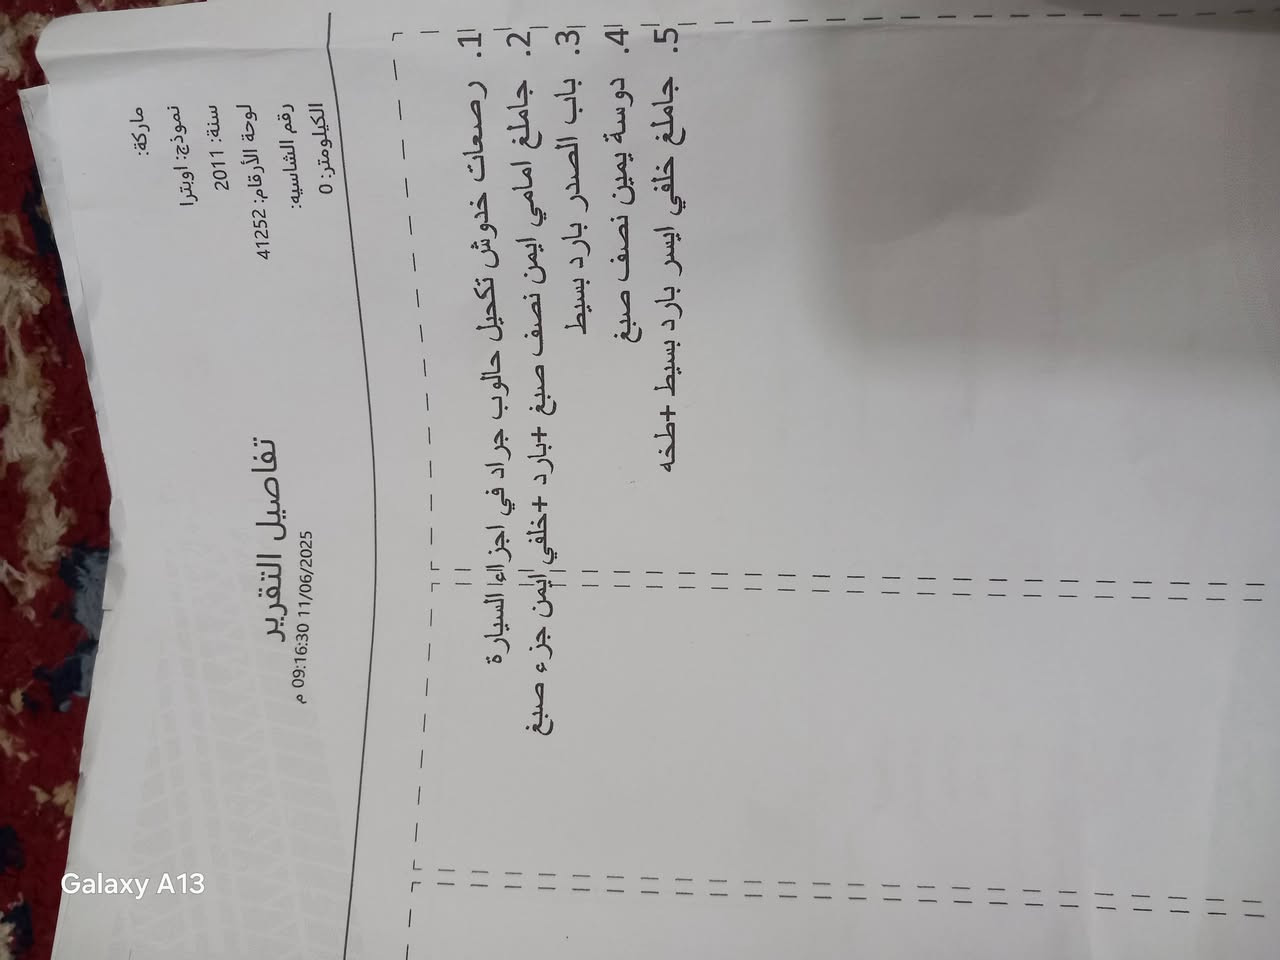 ماركة:
نموذج: اوبترا
سنة: 2011
لوحة الأرقام: 41252
رقم الشاسيه:
الكيلومتر: 0
تفاصيل التقرير
11/06/2025 09:16:30 م
1. رصعات خدوش تكحيل حالوب جراد في اجزاء السيارة
2. جاملغ امامي ايمن نصف صبغ +بارد +خلفي ايمن جزء صبغ
3. باب الصدر بارد بسيط
4. دوسة يمين نصف صبغ
5. جاملغ خلفي ايسر بارد بسيط +طخه
Galaxy A13